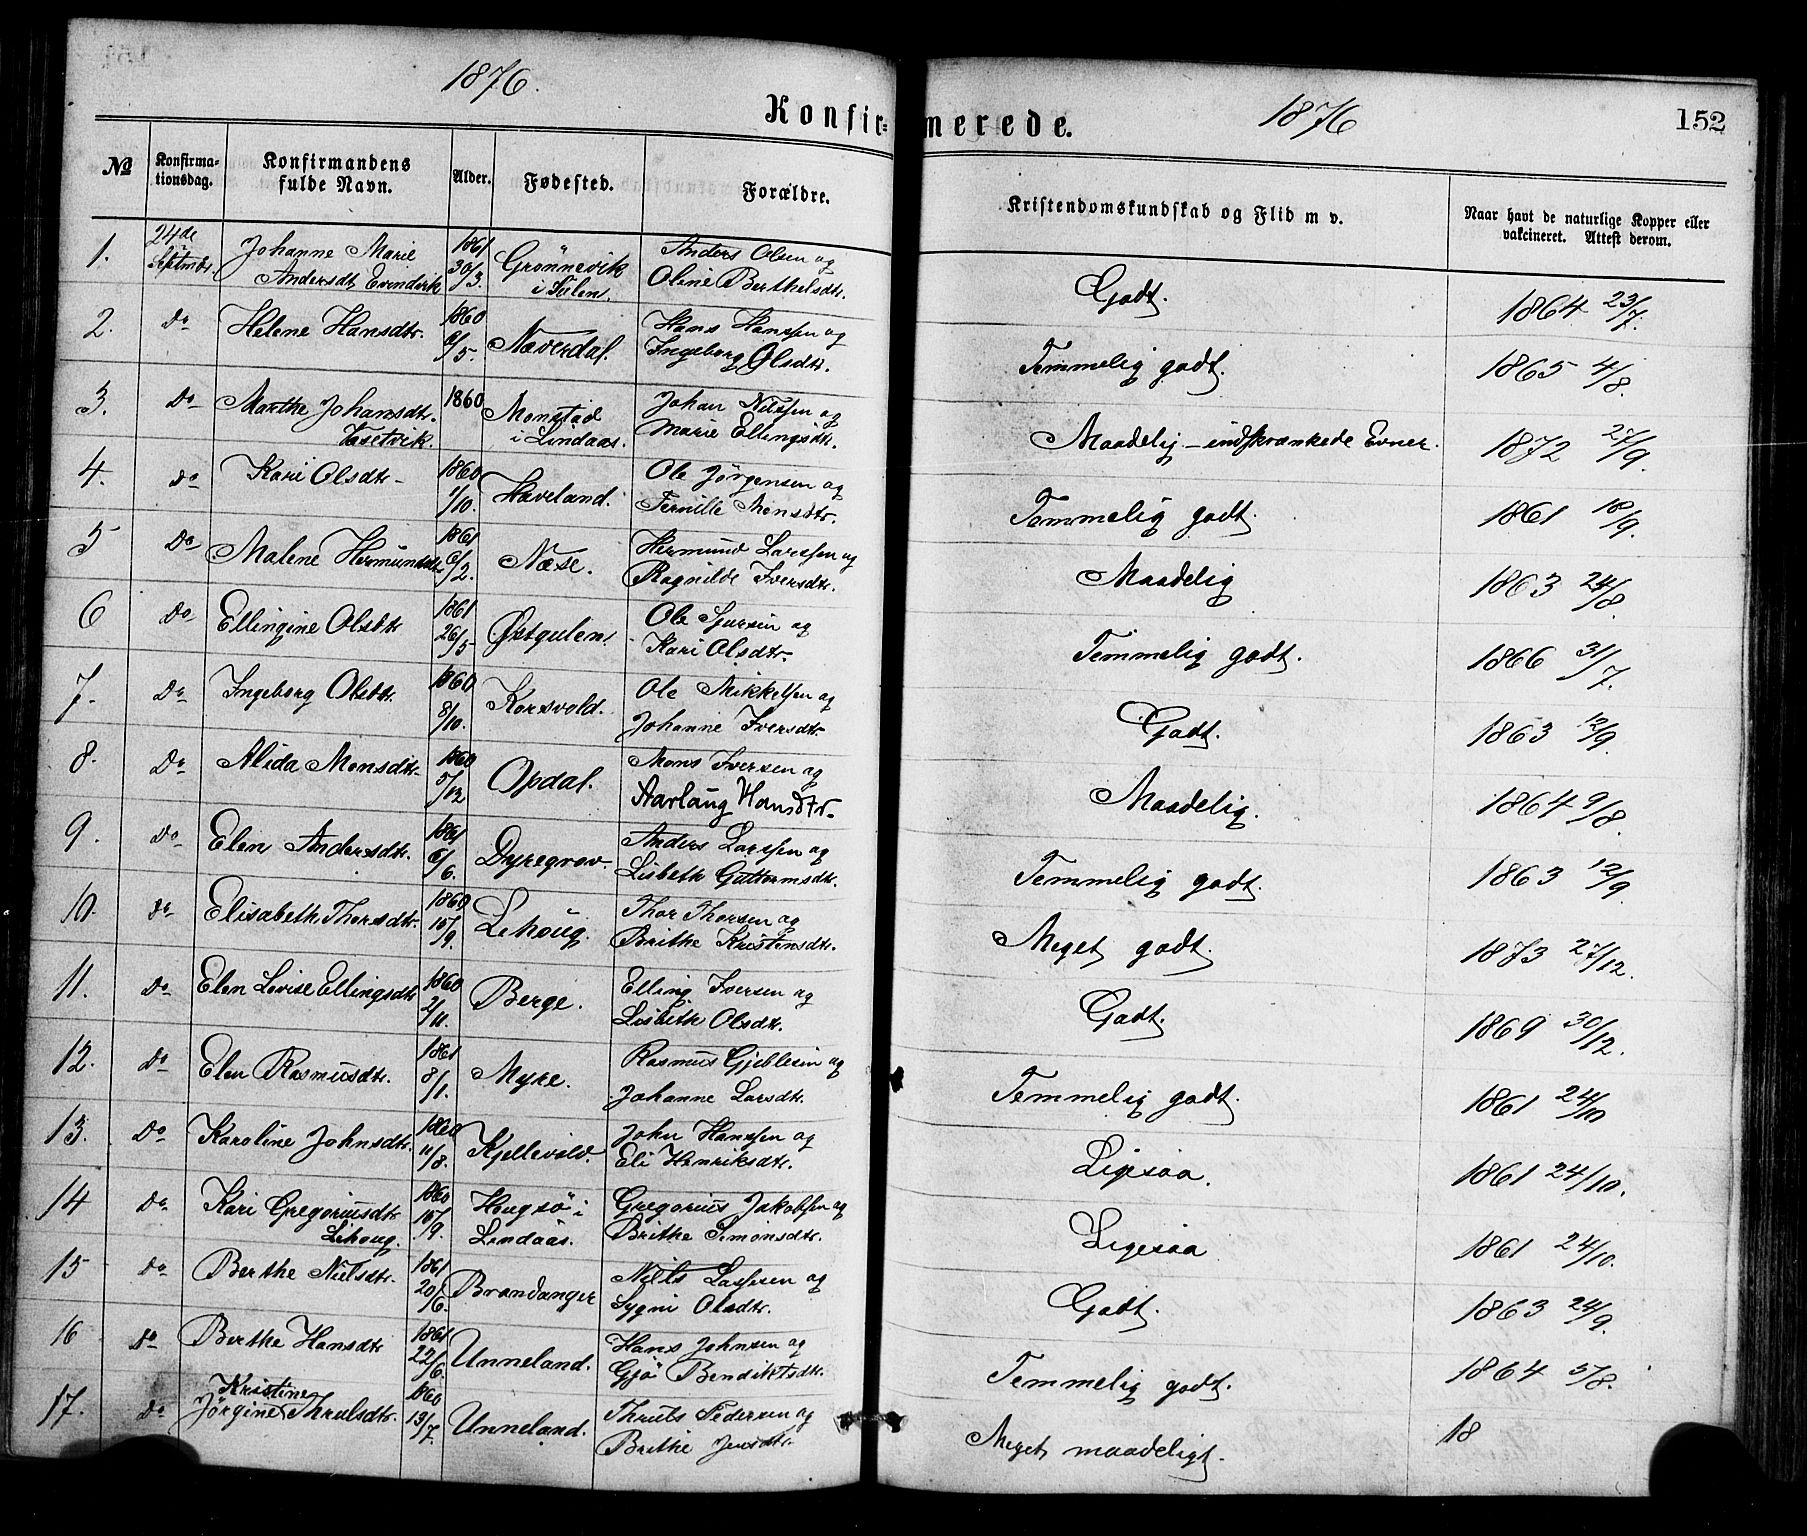 1876.
1876
152
Konfir=
merede.
No
Konfirma-
tionsdag.
Konfirmandens
fulde Navn.
Alder.
Fødested.
Forældre.
Kristendomskundskab og Flid m v.
Naar havt de naturlige Kopper eller
vakcineret. Attest derom.
1. 24de Johanne Marie 1861 Grønnevik Anders Olsen og
Septmbr. Andersdt Evindvik 30/3. i Sulen. Oline Berthelsdtr. Godt. 1864 23/7.
2. Do Helene Hansdtr. 1860 Næverdal. Hans Hanssen og
6/5. Ingeborg Olsdtr. Temmelig godt. 1865 4/8.
3. Do Marthe Johansdtr. 1860 Monstad Johan Nilssen og
i Lindaas. Marie Ellingsdtr. Maadelig – indskrænkede Evner. 1872 27/9.
4. Do Kari Olsdtr 1860 Haveland. Ole Jørgensen og
1/10. Pernille Monsdtr. Temmelig godt. 1861 18/9.
5 Do Malene Hermundsdtr 1861 Næse. Hermund Larssen og
6/2. Ragnilde Iversdtr. Maadelig 1863 24/8.
6 Do Ellingine Olsdtr 1861 Østgulen. Ole Sjursen og
26/5 Kari Olsdtr. Temmelig godt. 1866 31/7.
7. Do Ingeborg Olsdtr. 1860 Korsvold. Ole Mikkelsen og
8/10. Johanne Iversdtr. Godt. 1863 12/9.
8. Do Alida Monsdtr. 1860 Opdal. Mons Iversen og
5/12 Aarlaug Hansdtr. Maadelig. 1864 9/8.
9. Do Elen Andersdtr. 1861 Dyregrov. Anders Larssen og
6/6. Lisbeth Guttormsdtr. Temmelig godt. 1863 12/9.
10. Do Elisabeth Thorsdtr. 1860 Lihoug. Thor Thorsen og
15/9. Brithe Kristensdtr. Meget godt. 1873 27/12.
11. Do Elen Lovise Ellingsdtr 1860 Berge. Elling Iversen og
2/11. Lisbeth Olsdtr. Godt. 1869 30/12.
12. Do Elen Rasmusdtr. 1861 Myre. Rasmus Gjeblesen og
8/1. Johanne Larsdtr. Temmelig godt. 1861 24/10
13. Do Karoline Johnsdtr. 1860 Kjellevold. John Hanssen og
11/8. Eli Henriksdtr. Ligesaa. 1861 24/10.
14 Do Kari Gregoriusdtr 1860 Hugsø i Gregorius Jakobsen og
Lihoug. 15/9. Lindaas. Brithe Simonsdtr. Ligesaa 1861 24/10.
15 Do Berthe Nielsdtr. 1861 Brandanger Niels Lassesen og
20/6. Sygni Olsdtr. Godt. 1863 24/9.
16 Do Berthe Hansdtr 1861 Unneland. Hans Johnsen og
22/6. Gjø Bendiktsdtr. Temmelig godt. 1864 5/8.
17. Do Kristine 1860 Unneland. Thruls Pedersen og
Jørgine Thrulsdtr. 13/7. Brithe Jensdtr. Meget maadeligt. 18